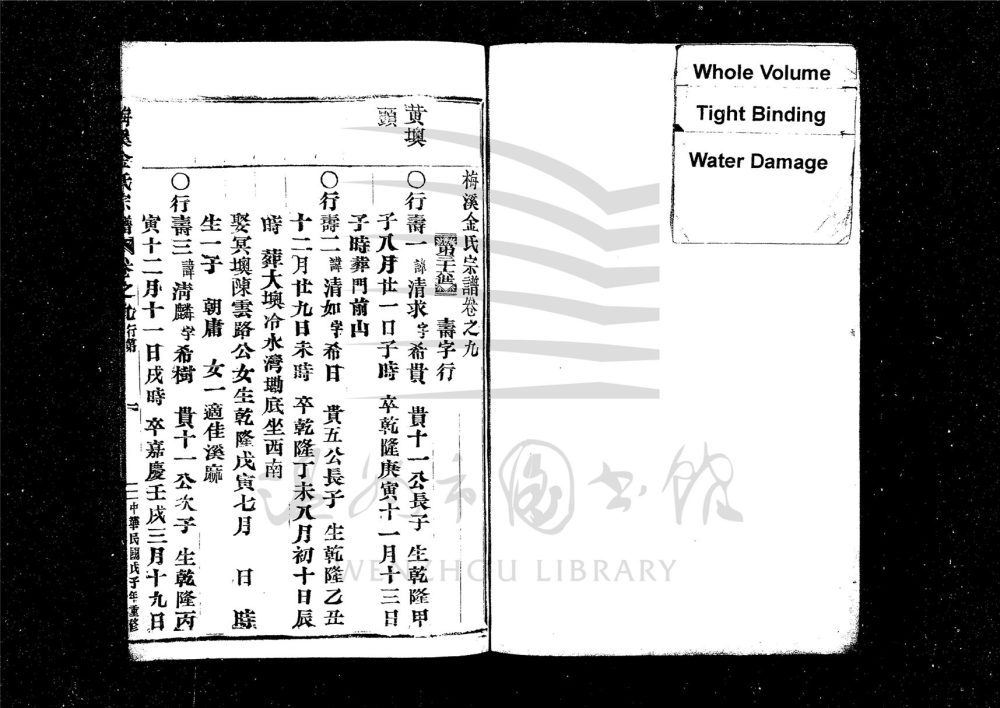 梅溪金氏宗譜卷之九
第三十舊 壽字行
黃墺
頭
〇行壽一諱清求字希貴 貴十一公長子 生乾隆甲
子八月廿一日子時 卒乾隆庚寅十一月十三日
子時葬門前山
〇行壽二諱清如字希日 貴五公長子 生乾隆乙丑
十二月廿九日未時 卒乾隆丁未八月初十日辰
時 葬大墺冷水灣墈底坐西南
娶冥墺陳雲路公女生乾隆戊寅七月 日 時
生一子 朝庸 女一適佳溪麻
〇行壽三諱清麟字希樹 貴十一公次子 生乾隆丙
寅十二月十一日戌時 卒嘉慶壬戌三月十九日
梅溪金氏宗譜 卷之九 行第 一 中華民國戊子年重修
Whole Volume
Tight Binding
Water Damage
溫州市圖书館
WENZHOU LIBRARY